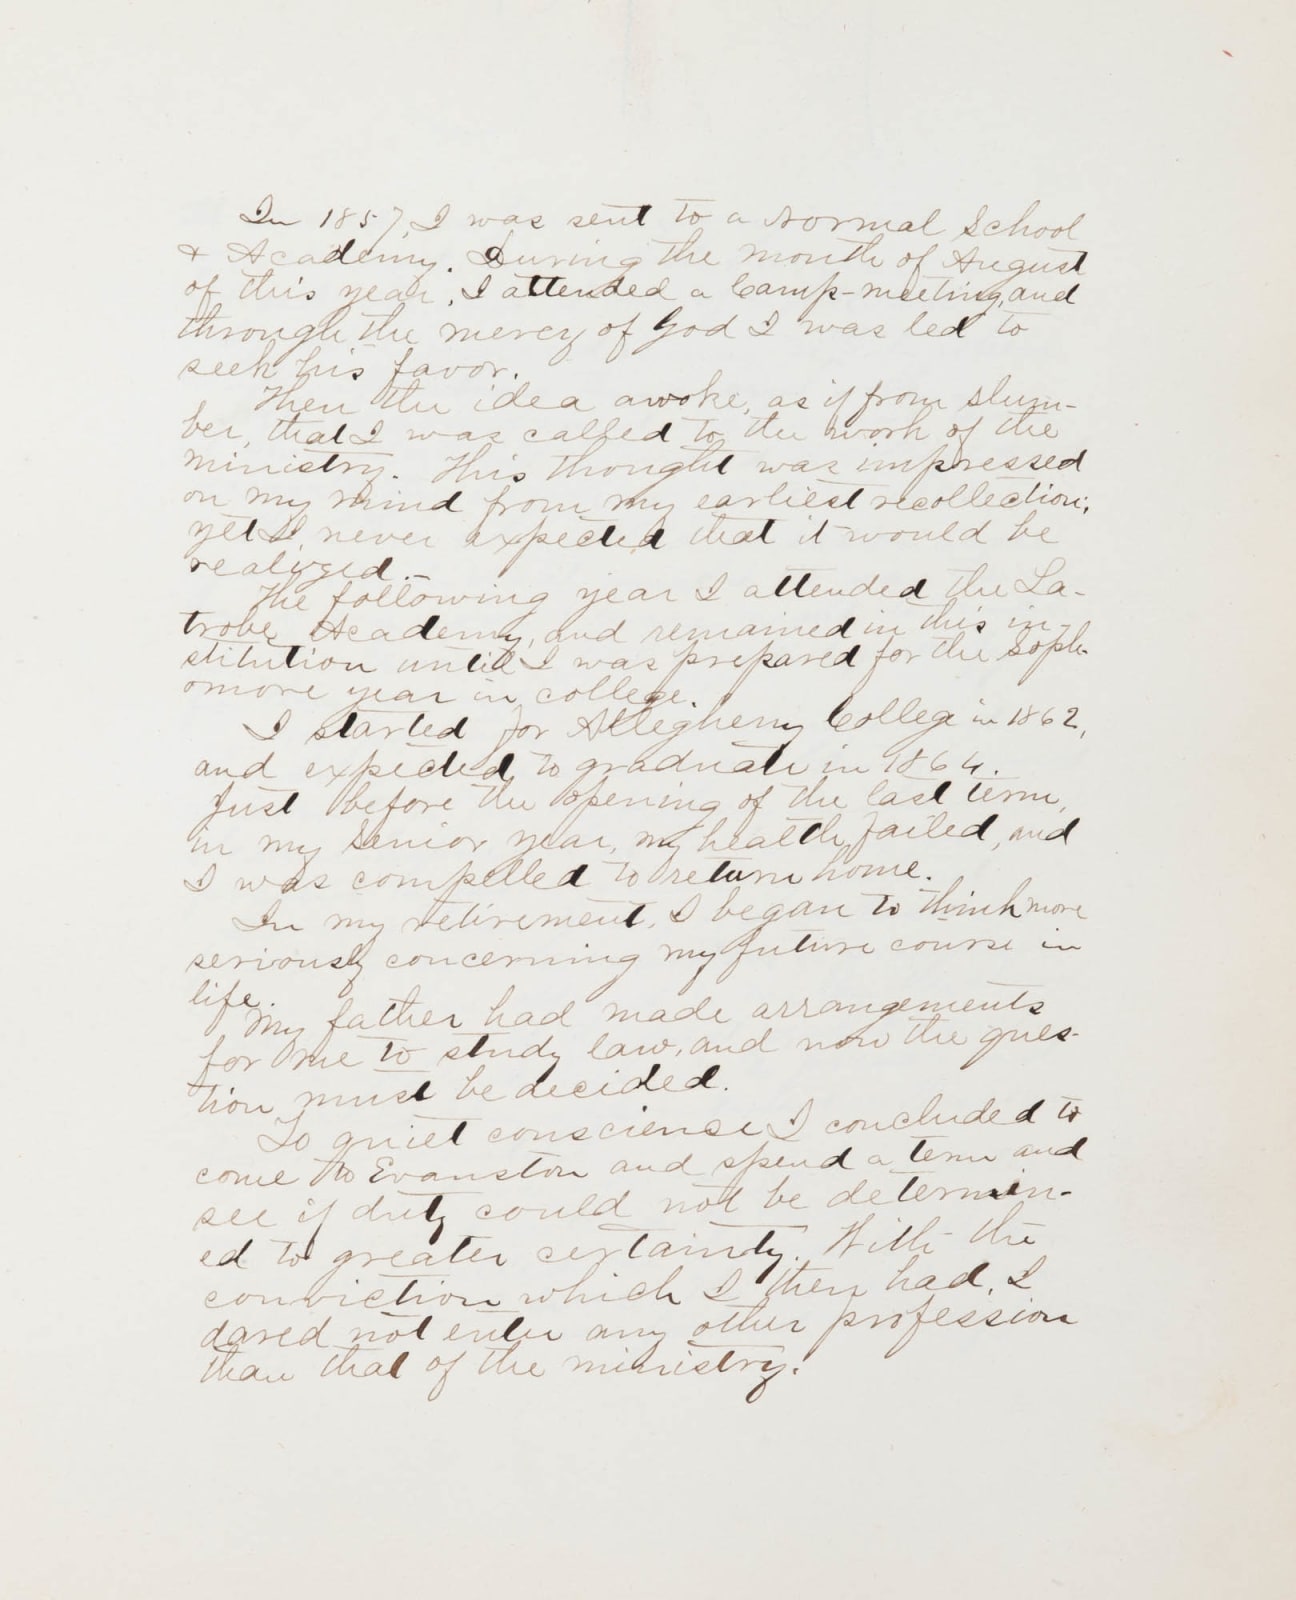 In 1857, I was sent to a Normal School
& Academy. During the month of August
of this year, I attended a Camp-meeting, and
through the mercy of God I was led to
seek his favor.
Then the idea awoke, as if from slum-
ber, that I was called to the work of the
ministry. This thought was impressed
on my mind from my earliest recollection;
yet I never expected that it would be
realized.
The following year I attended the La-
trobe Academy, and remained in this in-
stitution until I was prepared for the Soph-
omore year in college.
I started for Allegheny College in 1862,
and expected to graduate in 1864.
Just before the opening of the last term,
in my Senior year, my health failed, and
I was compelled to return home.
In my retirement, I began to think more
seriously concerning my future course in
life.
My father had made arrangements
for me to study law, and now the ques-
tion must be decided.
To quiet conscience I concluded to
come to Evanston and spend a term and
see if duty could not be determin-
ed to greater certainty. With the
conviction which I then had, I
dared not enter any other profession
than that of the ministry.